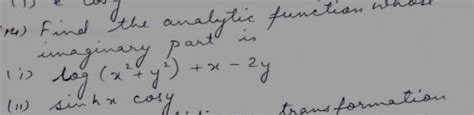 (1) e cosy
14) Find the analytic function whose
imaginary part is
(i) log (x²+y²) + x - 2y
(ii) sinhx cosy
transformation